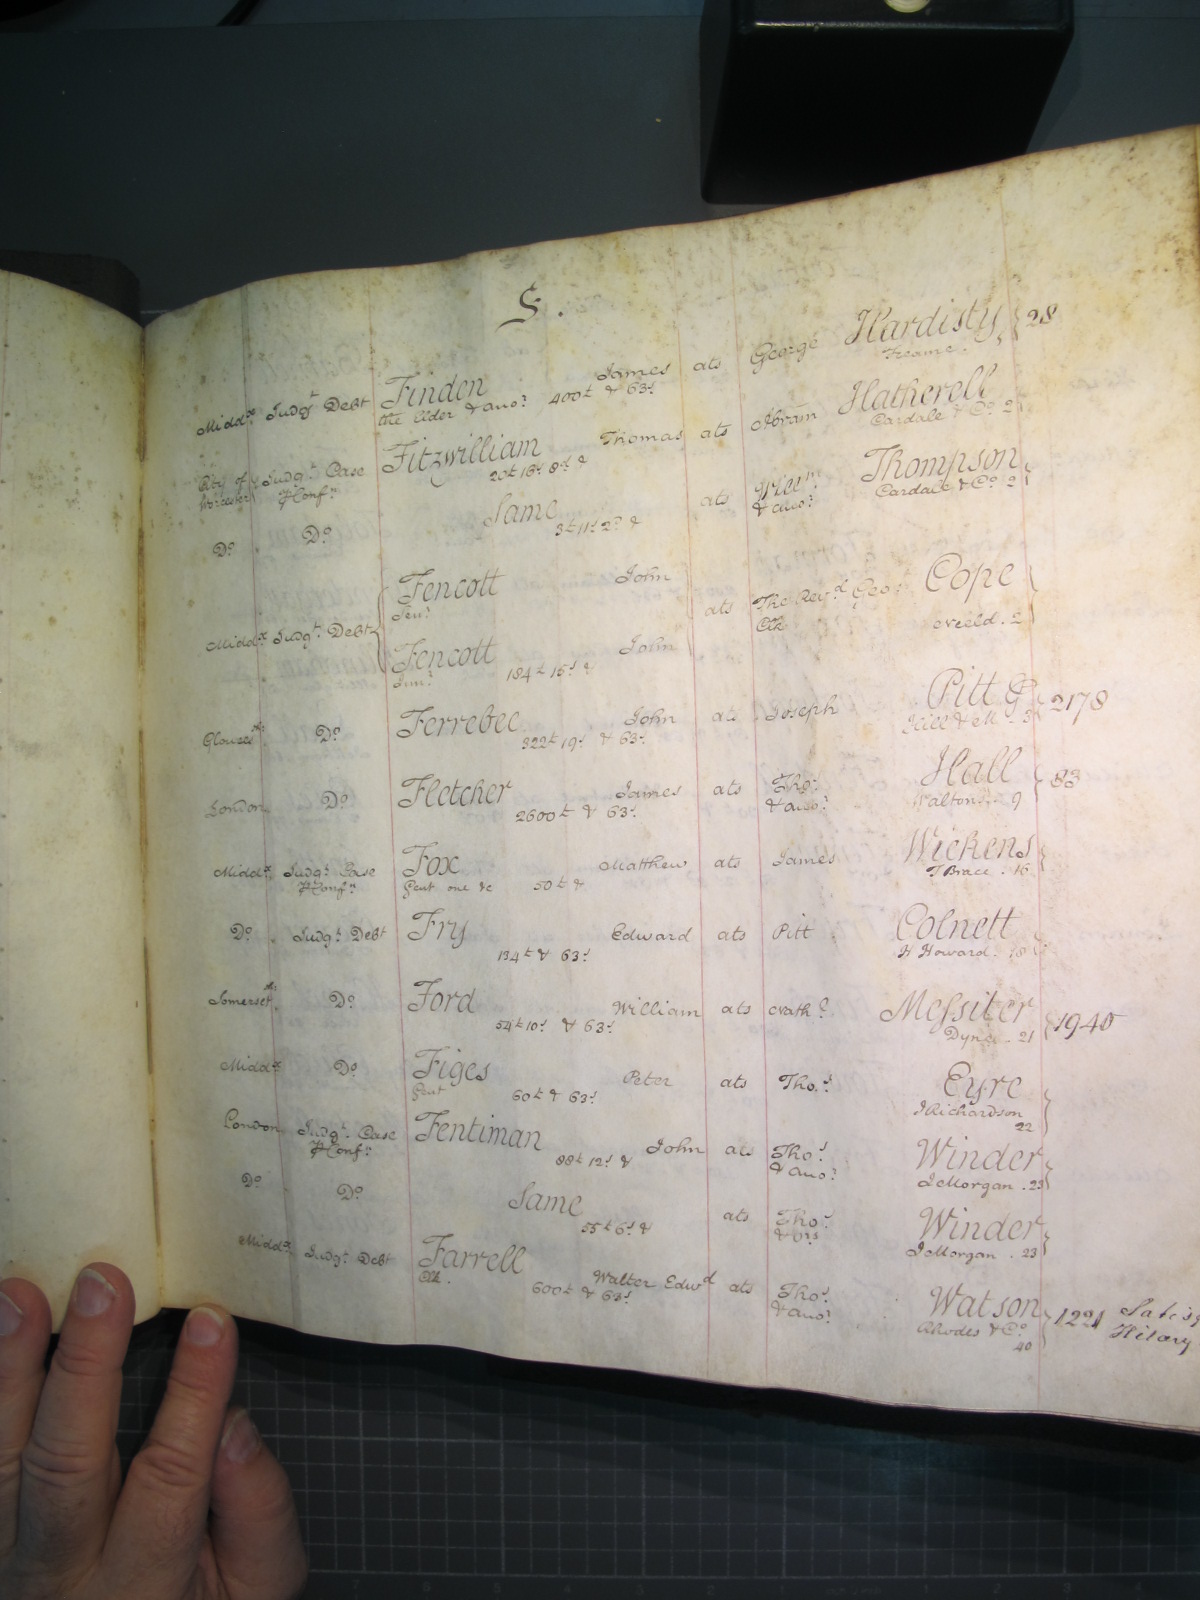 F.
Midd.x Judg.t Debt Finden James ats George Hardisty 28
the Elder & ano.r 400£ & 63.s Freame.
City of Worcester Judg.t Case Fitzwilliam Thomas ats Abram Hatherell
P Conf.n 20£ 18.s 8.d & Cardale & Co. 2
D.o D.o Same ats Will.m Thompson
3£ 11.s 2.d & & ano.r Cardale & Co. 2
Midd.x Judg.t Debt Fencott John ats The Rev.d Geo. Cope
Sen.r Clk 2
Fencott John
Jun.r 184£ 15.s &
Glouces.r D.o Ferrebee John ats Joseph Pitt 2178
322£ 19.s & 63.s 3
London D.o Fletcher James ats Tho.s Hall 83
2600£ & 63.s & ano.r Walton. 9
Midd.x Judg.t Case Fox Matthew ats James Wickens
P Conf.n Gent one &c 50£ & T Brace. 16
D.o Judg.t Debt Fry Edward ats Pitt Colnett
134£ & 63.s H Howard. 18
Somerset D.o Ford William ats Nath.l Messiter 1940
54£ 10.s & 63.s Dyne. 21
Midd.x D.o Figes Peter ats Tho.s Eyre
Gent 60£ & 63.s J Richardson
22
London Judg.t Case Fentiman John ats Tho.s Winder
P Conf.n 88£ 12.s & & ano.r J Morgan. 23
D.o D.o Same ats Tho.s Winder
55£ 6.s & & ors J Morgan. 23
Midd.x Judg.t Debt Farrell Walter Edw.d ats Tho.s Watson 1221
Clk. 600£ & 63.s & ano.r Rhodes & Co. Hilary
40